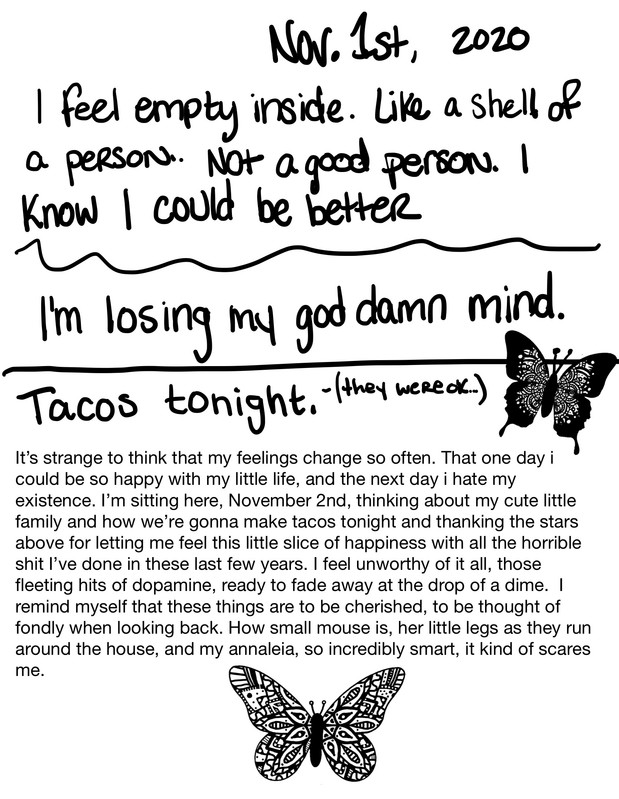 Nov. 1st, 2020
I feel empty inside. Like a shell of
a person.. Not a good person. I
Know I could be better
I'm losing my god damn mind.
Tacos tonight. -(they were ok..)
It's strange to think that my feelings change so often. That one day i
could be so happy with my little life, and the next day i hate my
existence. I'm sitting here, November 2nd, thinking about my cute little
family and how we're gonna make tacos tonight and thanking the stars
above for letting me feel this little slice of happiness with all the horrible
shit I've done in these last few years. I feel unworthy of it all, those
fleeting hits of dopamine, ready to fade away at the drop of a dime.  I
remind myself that these things are to be cherished, to be thought of
fondly when looking back. How small mouse is, her little legs as they run
around the house, and my annaleia, so incredibly smart, it kind of scares
me.